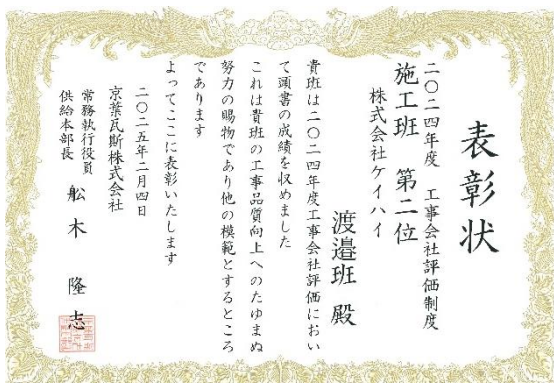 表彰状
二〇二四年度 工事会社評価制度
施工班 第二位
株式会社ケイハイ
渡邉班 殿
貴班は二〇二四年度工事会社評価におい
て頭書の成績を収めました
これは貴班の工事品質向上へのたゆまぬ
努力の賜物であり他の模範とするところ
であります
よってここに表彰いたします
二〇二五年二月四日
京葉瓦斯株式会社
常務執行役員
供給本部長
舩木 隆志